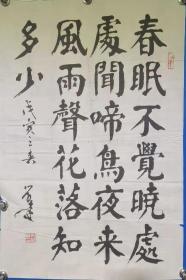 春眠不覺曉處
處聞啼鳥夜来
風雨聲花落知
多少
戊寅之春